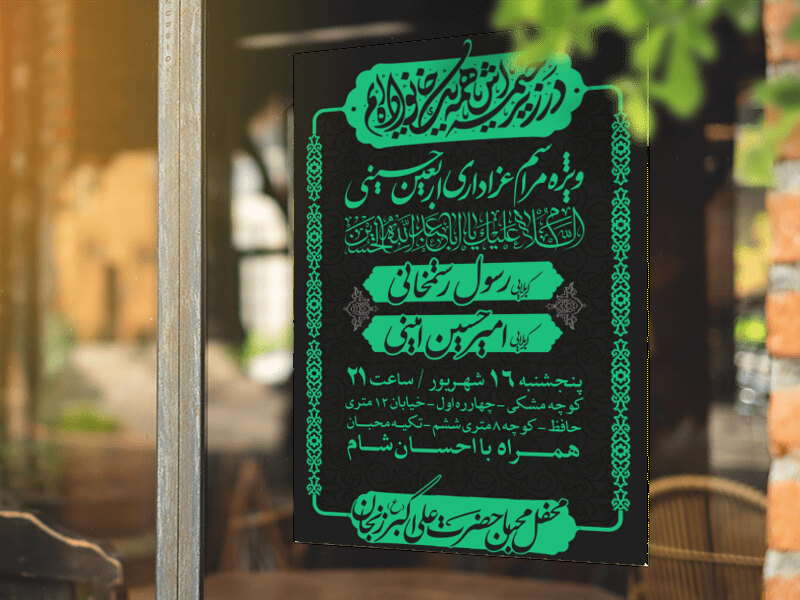 در زیر سم اسبش با همه یک خانواده ایم
ویژه مراسم عزاداری اربعین حسینی
السلام علیک یا اباعبدالله الحسین
کربلایی رسول رستخانی
کربلایی امیرحسین امینی
پنجشنبه ۱۶ شهریور / ساعت ۲۱
کوچه مشکی - چهارره اول - خیابان ۱۲ متری
حافظ - کوچه ۸ متری ششم - تکیه محبان
همراه با احسان شام
محفل محبان حضرت علی اکبر (ع) زنجان